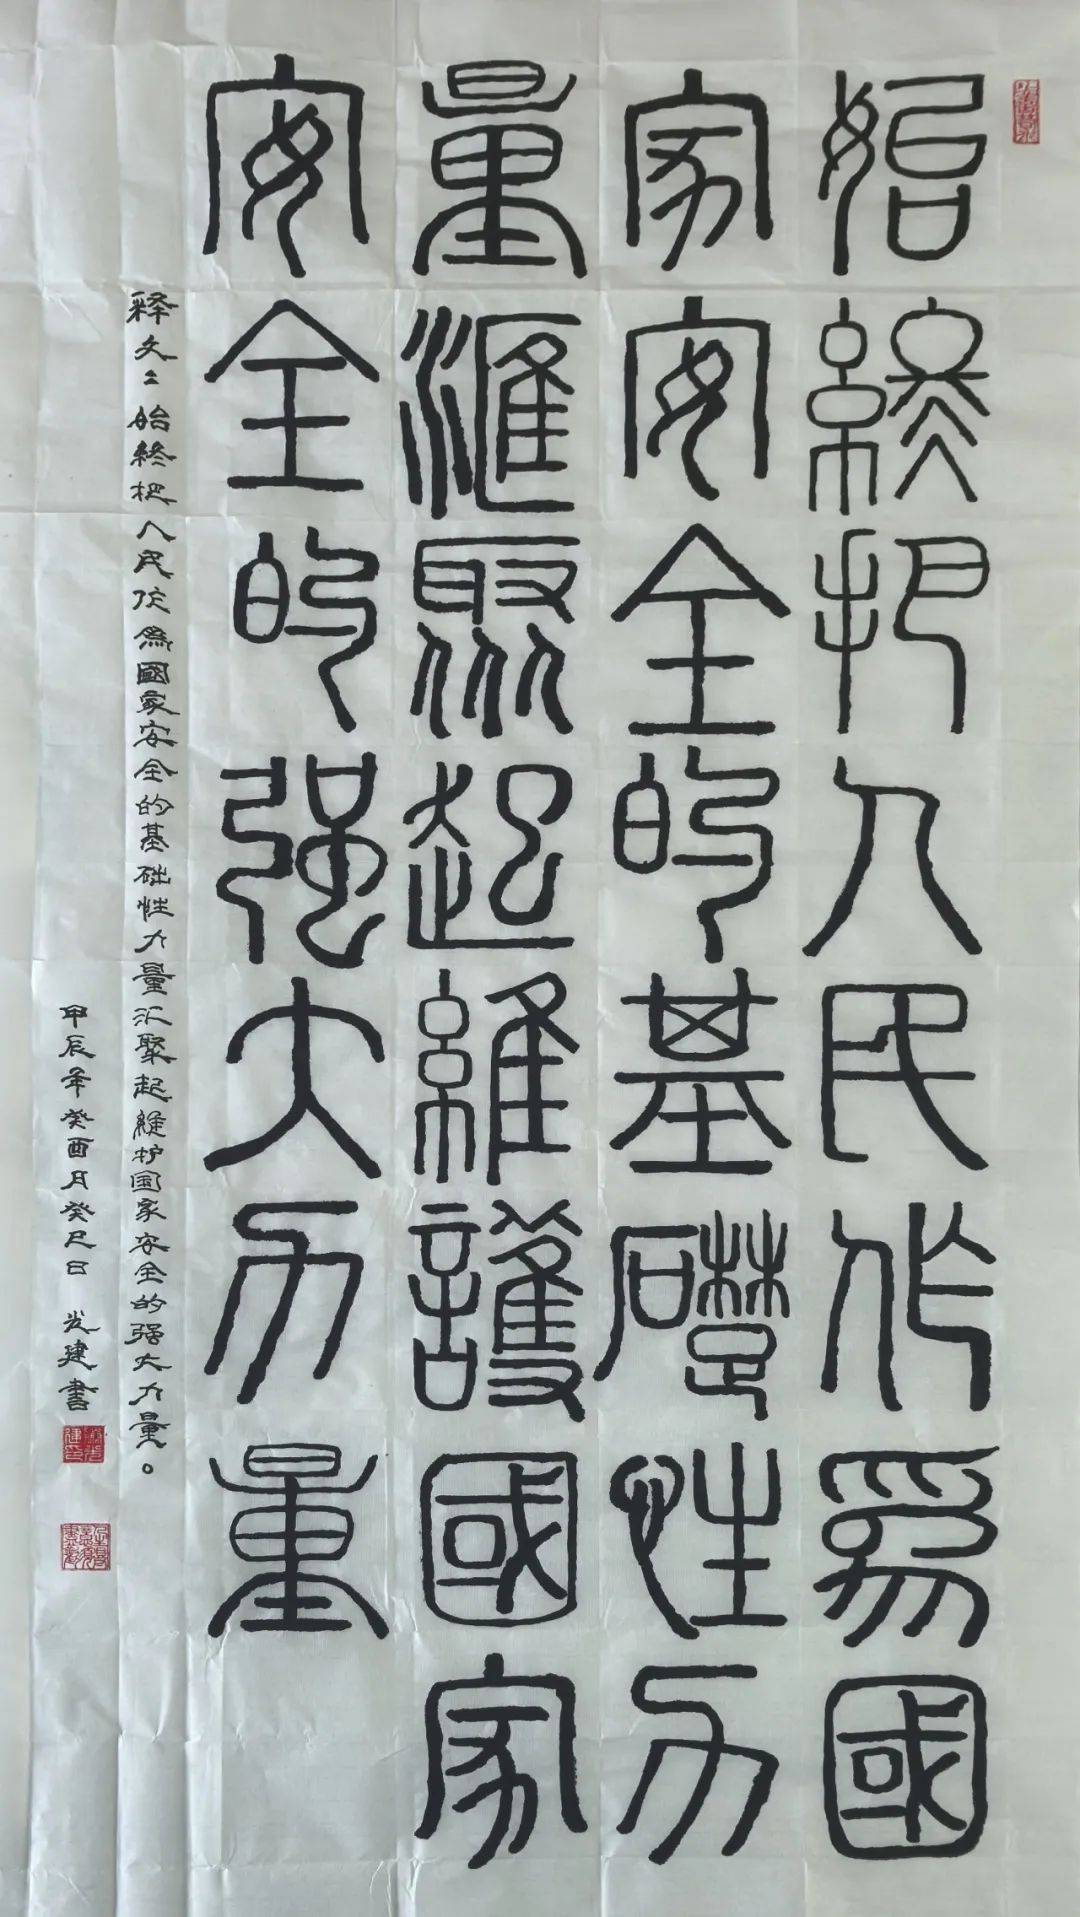 始終把人民作爲國
家安全的基礎性力
量滙聚起維護國家
安全的强大力量
释文：始終把人民作為國家安全的基础性力量汇聚起維护国家安全的强大力量。
甲辰年癸酉月癸巳日 发建書